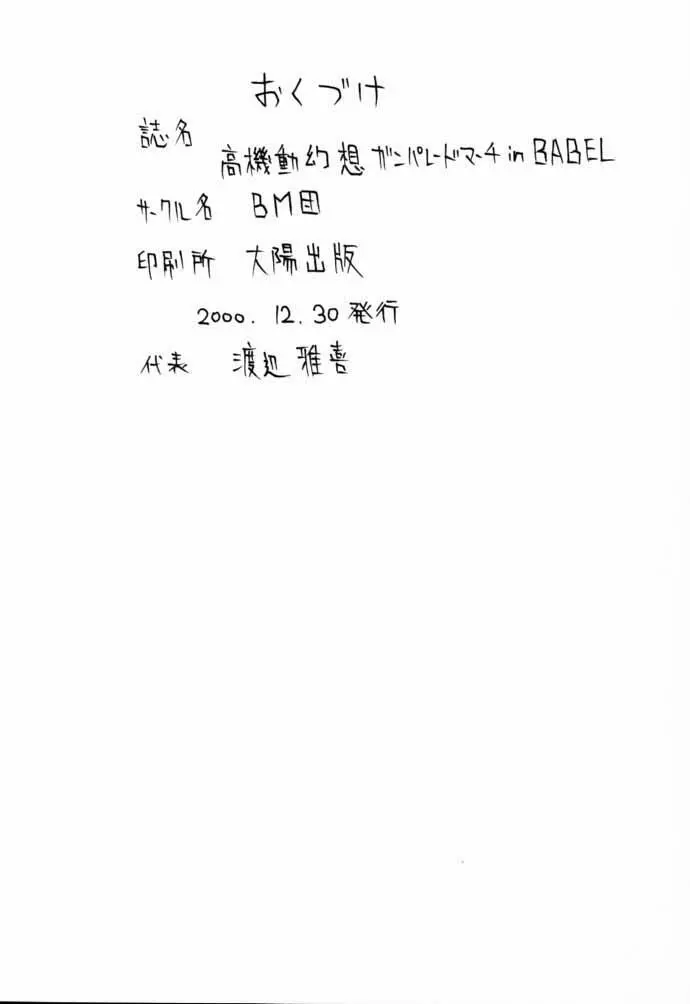 おくづけ
誌名
高機動幻想ガンパレードマーチ in BABEL
サークル名 BM団
印刷所 大陽出版
2000. 12. 30 発行
代表 渡辺 雅喜